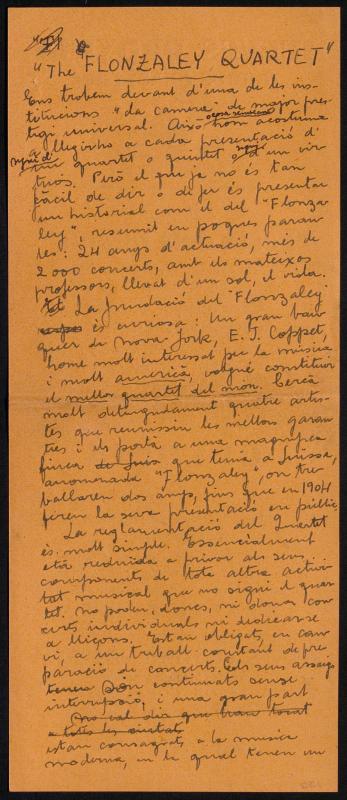 "The "FLONZALEY QUARTET"
Ens trobem devant d'una de les ins-
titucions "da camera" de major pres-
tigi universal. Això hom acostuma
a llegirho a cada presentació d'
quartet o quintet o d'un vir-
tuós. Però el que ja no és tan
fàcil de dir o de fer és presentar
un historial com el del "Flonza-
ley", resumit en poques parau-
les: 24 anys d'actuació, més de
2000 concerts, amb els mateixos
professors, llevat d'un sol, el viola.
La fundació del "Flonzaley"
és curiosa: Un gran ban-
quer de Nova-York, E. J. Coppet,
home molt interessat per la música
i molt americà, volgué constituir
el millor quartet del món. Cercà
molt detingudament quatre artis-
tes que reunissin les millors garan-
ties i els portà a una magnífica
finca de Suis que tenia a Suissa,
anomenada "Flonzaley", on tre-
ballaren dos anys, fins que en 1904
feren la seva presentació en públic.
La reglamentació del Quartet
és molt simple. Essencialment
està reduïda a privar als seus
components de tota altra activi-
tat musical que no sigui el quar-
tet. No poden, doncs, ni donar con-
certs individuals ni dedicarse
a lliçons. Estan obligats, en can-
vi, a un treball constant de pre-
paració de concerts. Els seus assaigs
són continuats sense
interrupció, i una gran part
no cal dir que han tocat
a totes les ciutats
estan consagrats a la música
moderna, en la qual tenen un